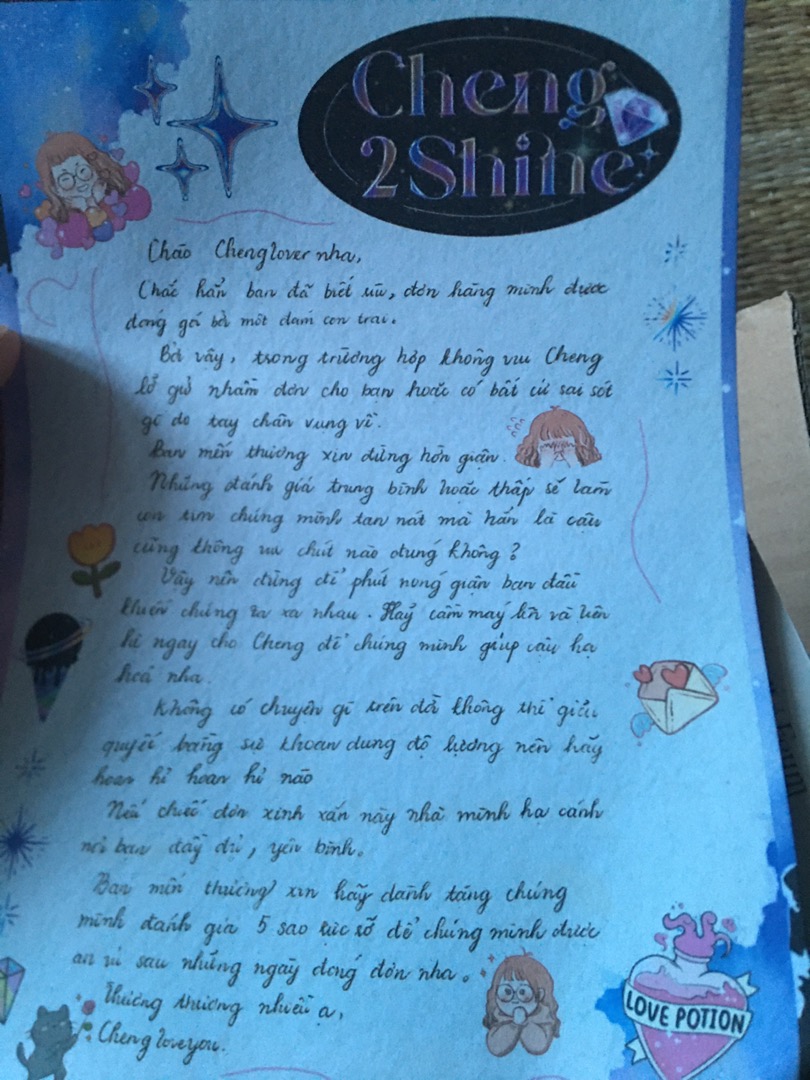 Cheng
2Shine
Chào Chenglover nha,
Chắc hẳn bạn đã biết rùi, đơn hàng mình được
đóng gói bởi một đám con trai.
Bởi vậy, trong trường hợp không vui Cheng
lỡ gửi nhầm đơn cho bạn hoặc có bất cứ sai sót
gì do tay chân vụng về.
Bạn mến thương xin đừng hờn giận.
Những đánh giá trung bình hoặc thấp sẽ làm
con tim chúng mình tan nát mà hẳn là cậu
cũng không vui chút nào đúng không?
Vậy nên đừng để phút nóng giận ban đầu
khiến chúng ta xa nhau. Hãy cầm máy lên và liên
hệ ngay cho Cheng để chúng mình giúp cậu hạ
hoả nha.
Không có chuyện gì trên đời không thể giải
quyết bằng sự khoan dung độ lượng nên hãy
hoan hỉ hoan hỉ nào
Nếu chiếc đơn xinh xắn này nhà mình hạ cánh
nơi bạn đầy đủ, yên bình.
Bạn mến thương xin hãy dành tặng chúng
mình đánh giá 5 sao rực rỡ để chúng mình được
an ủi sau những ngày đóng đơn nha.
Thương thương nhiều ạ,
Chengloveyou.
LOVE POTION